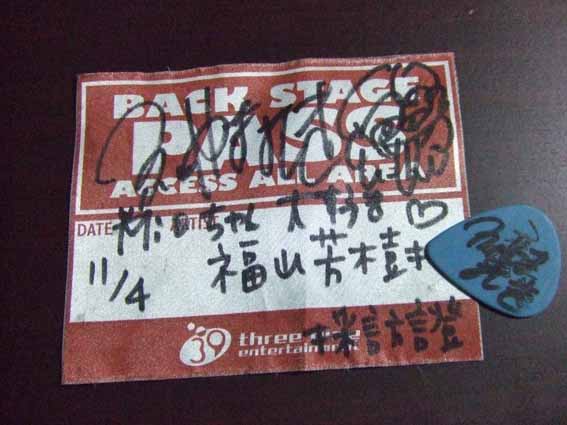 BACK STAGE
PASS
ACCESS ALL AREA
DATE ARTIST
ちゃん 大好き♡
11/4 福山芳樹
39 three nine
entertainment
採訪證